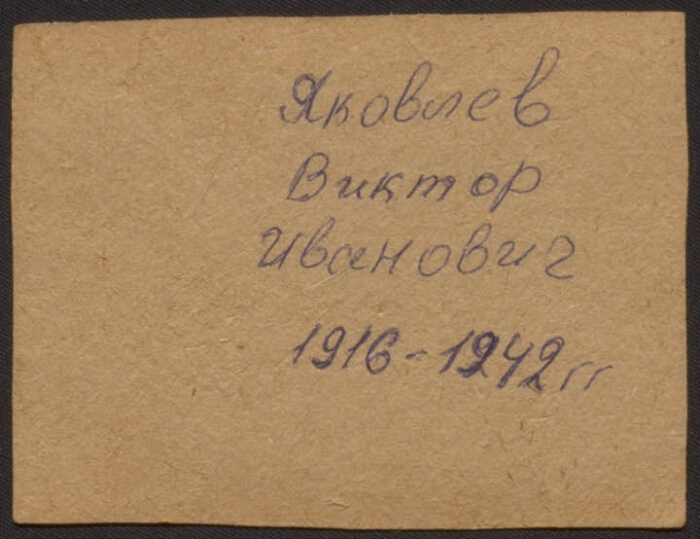 Яковлев
Виктор
Иванович
1916-1942гг